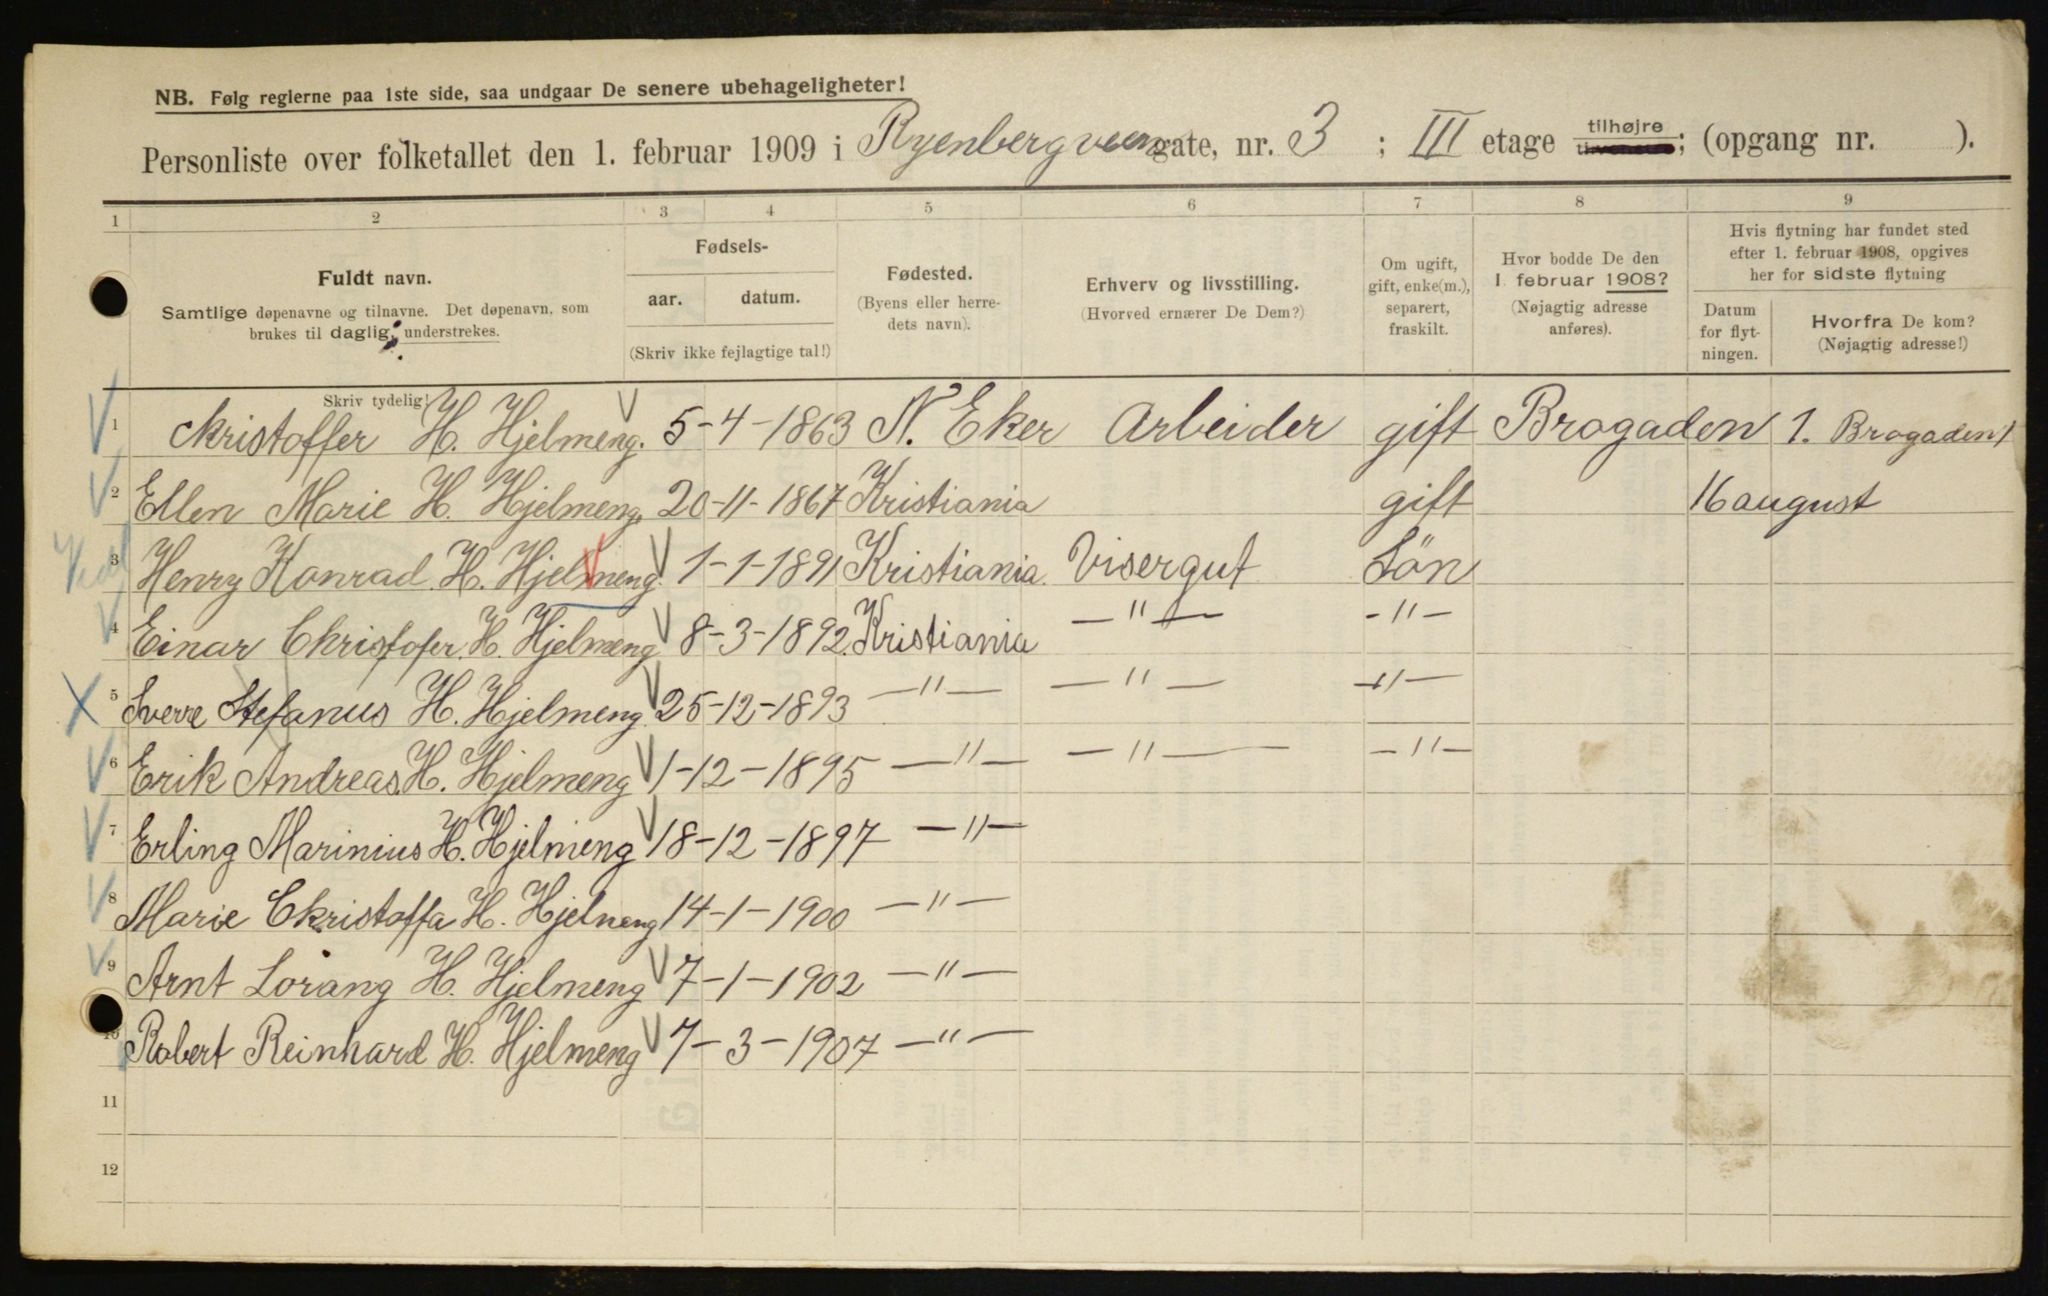 NB. Følg reglerne paa 1ste side, saa undgaar De senere ubehageligheter!
Personliste over folketallet den 1. februar 1909 i Ryenbergveien gate, nr. 3 ; III etage tilhøjre tilvenstre; (opgang nr. ).
1 2 3 4 5 6 7 8 9
Fuldt navn.
Samtlige døpenavne og tilnavne. Det døpenavn, som
brukes til daglig, understrekes.
Fødsels-
aar. datum.
(Skriv ikke fejlagtige tal!)
Fødested.
(Byens eller herre-
dets navn).
Erhverv og livsstilling.
(Hvorved ernærer De Dem?)
Om ugift,
gift, enke(m.),
separert,
fraskilt.
Hvor bodde De den
1. februar 1908?
(Nøjagtig adresse
anføres).
Hvis flytning har fundet sted
efter 1. februar 1908, opgives
her for sidste flytning
Datum
for flyt-
ningen.
Hvorfra De kom?
(Nøjagtig adresse!)
Skriv tydelig!
1 Kristoffer H. Hjelmeng. 5-4-1863 N. Eker Arbeider gift Brogaden 1. Brogaden 1
2 Ellen Marie H. Hjelmeng. 20-11-1867 Kristiania gift 16 august
3 Henry Konrad. H. Hjelmeng. 1-1-1891 Kristiania. Visergut Sön
4 Einar Christofer. H. Hjelmeng 8-3-1892. Kristiania —"— -"-
5 Sverre Stefanus H. Hjelmeng. 25-12-1893 —"— —"— -"-
6 Erik Andreas. H. Hjelmeng 1-12-1895 —"— —"— -"-
7 Erling Marinius H. Hjelmeng 18-12-1897 —"—
8 Marie Christoffa H. Hjelmeng 14-1-1900 —"—
9 Arnt Lorang H. Hjelmeng 7-1-1902 —"—
10 Robert Reinhard H. Hjelmeng 7-3-1907 —"—
11
12